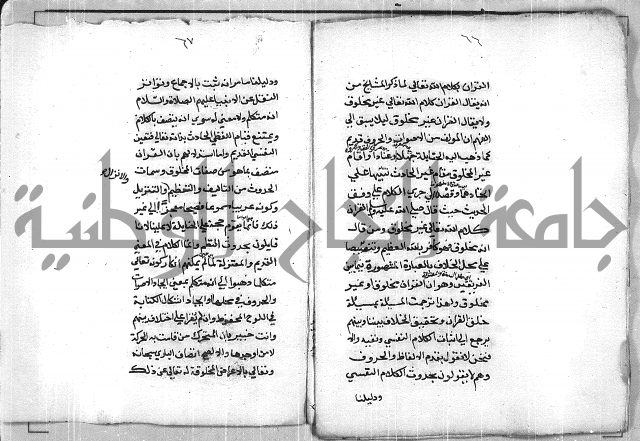 ٦٦
القرآن بكلام الله تعالى لما ذكر المشايخ من
انه يقال القرآن كلام الله تعالى غير مخلوق
ولا يقال القرآن غير مخلوق ليلا يسبق الى
الفهم ان المولف من الاصوات والحروف قديم
كما ذهب اليه الحنابلة جهلا وعنادا واقام
غير المخلوق مقام غير الحادث تنبيها على
اتحادهما وقصدا الى جري الكلام على وفق
الحديث حيث قال صلى الله عليه وسلم القرآن
كلام الله تعالى غير مخلوق ومن قال
انه مخلوق فهو كافر بالله العظيم وتنصيصا
على محل الخلاف بالعبارة المشهورة فيما بين
الفريقين وهو ان القرآن مخلوق او غير
مخلوق ولهذا ترجمت المسيلة بمسيلة
خلق القرآن وتحقيق الخلاف بيننا وبينهم
يرجع الى اثبات الكلام النفسي ونفيه والا
فنحن لا نقول بقدم الالفاظ والحروف
وهم لا يقولون بحدوث الكلام النفسي
ودليلنا
٦٧
ودليلنا ما مر انه ثبت بالاجماع وتواتر
النقل عن الانبيا عليهم الصلاة والسلام
انه متكلم ولا معنى له سوى انه متصف بالكلام
ويمتنع قيام اللفظي الحادث بذاته تعالى فتعين
النفسي القديم واما استدلالهم بان القرآن
متصف بما هو من صفات المخلوق وسمات
الحدوث من التاليف والتنظيم والتنزيل
والانزال
وكونه عربيا مسموعا فصيحا معجزا الى غير
ذلك فانما يقوم حجة على الحنابلة لا علينا لانا
قايلون بحدوث النظم وانما الكلام في المعنى
القديم والمعتزلة لما لم يمكنهم انكار كونه تعالى
متكلما ذهبوا الى انه متكلم بمعنى ايجاد الاصوات
والحروف في محلها او ايجاد اشكال الكتابة
في اللوح المحفوظ وان لم يقرا على اختلاف بينهم
وانت خبير بان المتحرك من قامت به الحركة
لا من اوجدها والا لصح اتصاف الباري سبحانه
وتعالى بالاعراض المخلوقة له تعالى عن ذلك
جامعة النجاح الوطنية